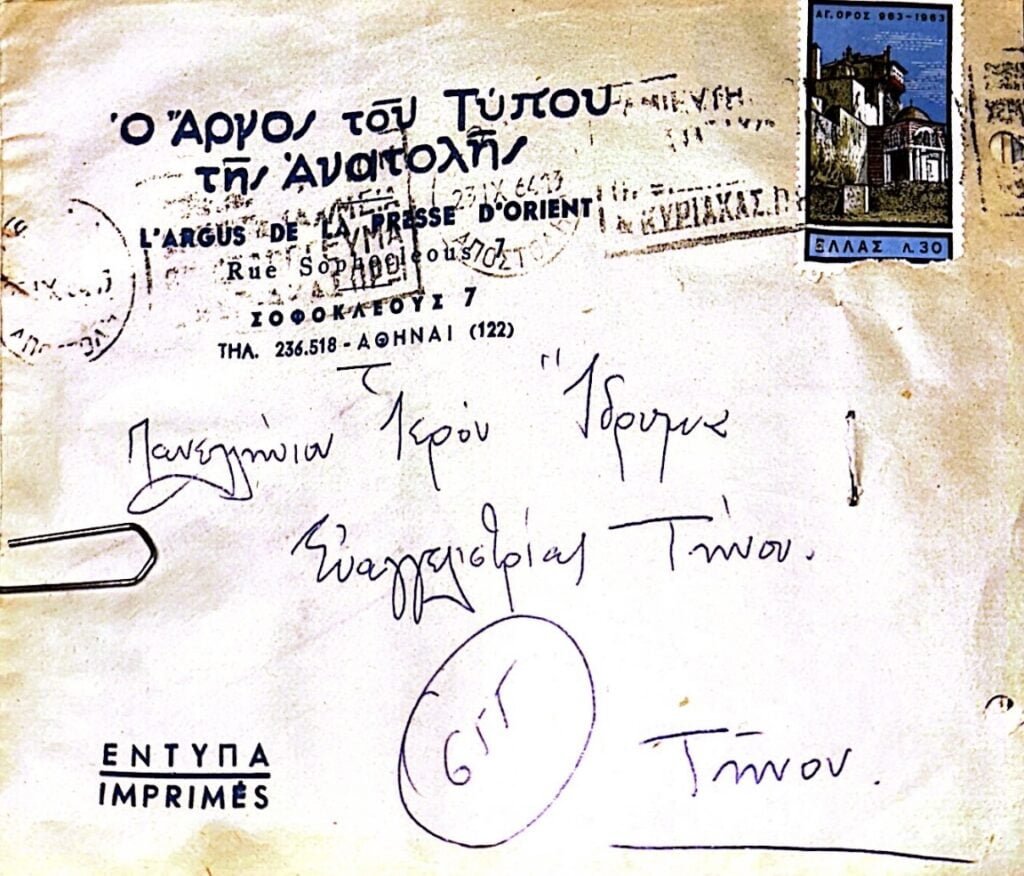 ΑΓ. ΟΡΟΣ 963-1963
Ὁ Ἄργος τοῦ Τύπου
τῆς Ἀνατολῆς
23.IX.64.13
L'ARGUS DE LA PRESSE D'ORIENT
ΚΥΡΙΑΚΑΣ
ΕΛΛΑΣ Λ.30
Rue Sophocleous 7
ΣΟΦΟΚΛΕΟΥΣ 7
ΤΗΛ. 236.518 - ΑΘΗΝΑΙ (122)
Πανελλήνιον Ἱερόν Ἵδρυμα
Εὐαγγελιστρίας Τήνου.
ΕΝΤΥΠΑ
IMPRIMÉS
Τῆνου.